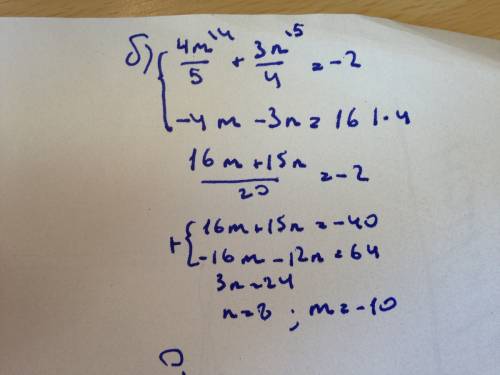 б) { 4m\4/5 + 3n\5/4 = -2
-4m - 3n = 16 |·4
16m + 15n / 20 = -2
+ { 16m + 15n = -40
-16m - 12n = 64
3n = 24
n = 8 ; m = -10